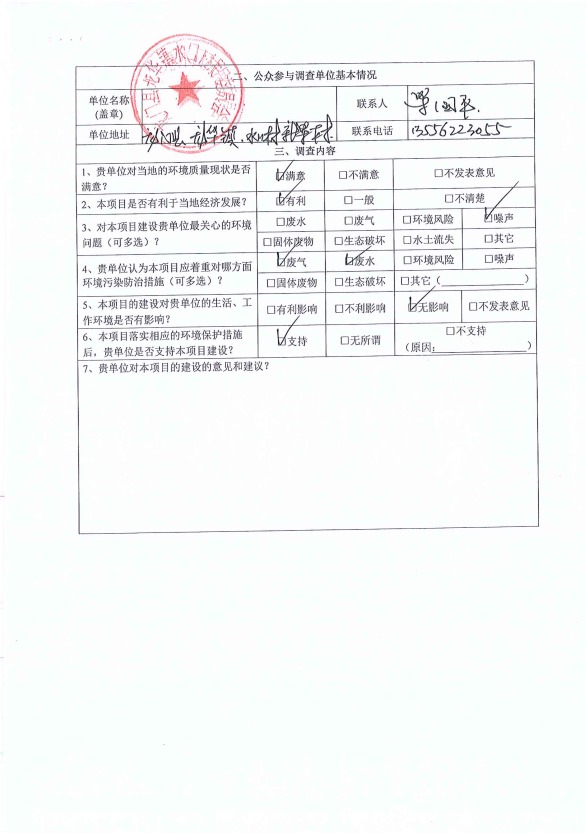 二、公众参与调查单位基本情况
单位名称
(盖章)
联系人
单位地址
联系电话 13556223055
三、调查内容
1、贵单位对当地的环境质量现状是否满意?
☑满意 □不满意 □不发表意见
2、本项目是否有利于当地经济发展?
☑有利 □一般 □不清楚
3、对本项目建设贵单位最关心的环境问题(可多选)?
□废水 □废气 □环境风险 ☑噪声
□固体废物 □生态破坏 □水土流失 □其它
4、贵单位认为本项目应着重对哪方面环境污染防治措施(可多选)?
☑废气 ☑废水 □环境风险 □噪声
□固体废物 □生态破坏 □其它(________)
5、本项目的建设对贵单位的生活、工作环境是否有影响?
□有利影响 □不利影响 ☑无影响 □不发表意见
6、本项目落实相应的环境保护措施后,贵单位是否支持本项目建设?
☑支持 □无所谓 □不支持
(原因:________)
7、贵单位对本项目的建设的意见和建议?